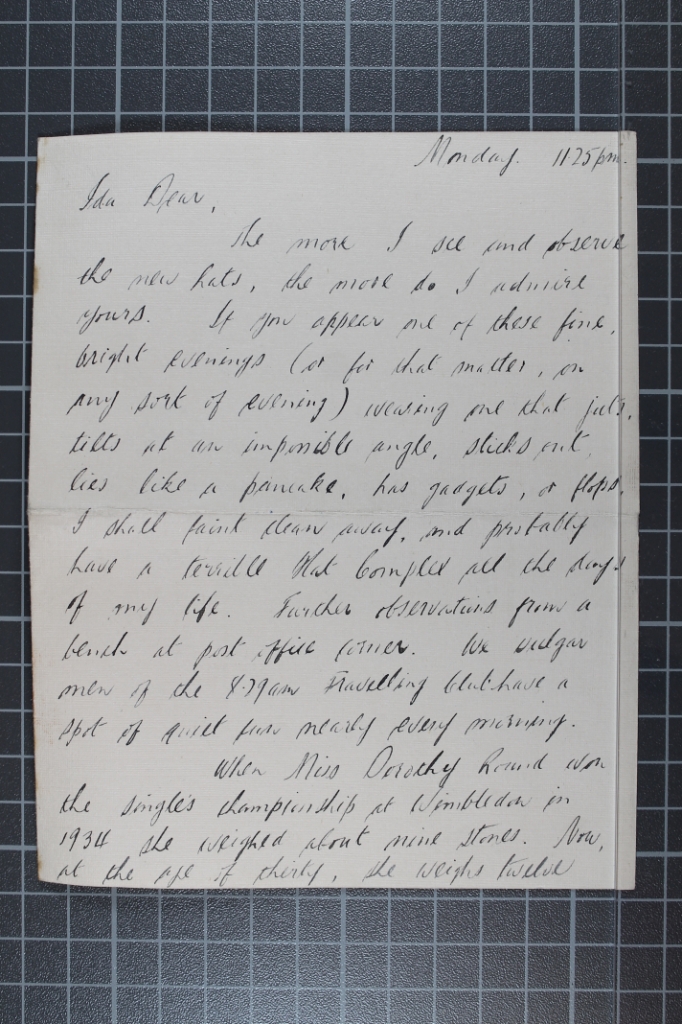 Monday. 11.25pm.
Ida Dear,
The more I see and observe
the new hats, the more do I admire
yours. If you appear one of these fine,
bright evenings (or for that matter, on
any sort of evening) wearing one that juts,
tilts at an impossible angle, sticks out,
lies like a pancake, has gadgets, or flops,
I shall faint clean away, and probably
have a terrible Hat Complex all the days
of my life. Further observations from a
bench at post office corner. We vulgar
men of the 8.29am Travelling Club have a
spot of quiet fun nearly every morning.
When Miss Dorothy Round won
the singles championship at Wimbledon in
1934 she weighed about nine stones. Now,
at the age of thirty, she weighs twelve